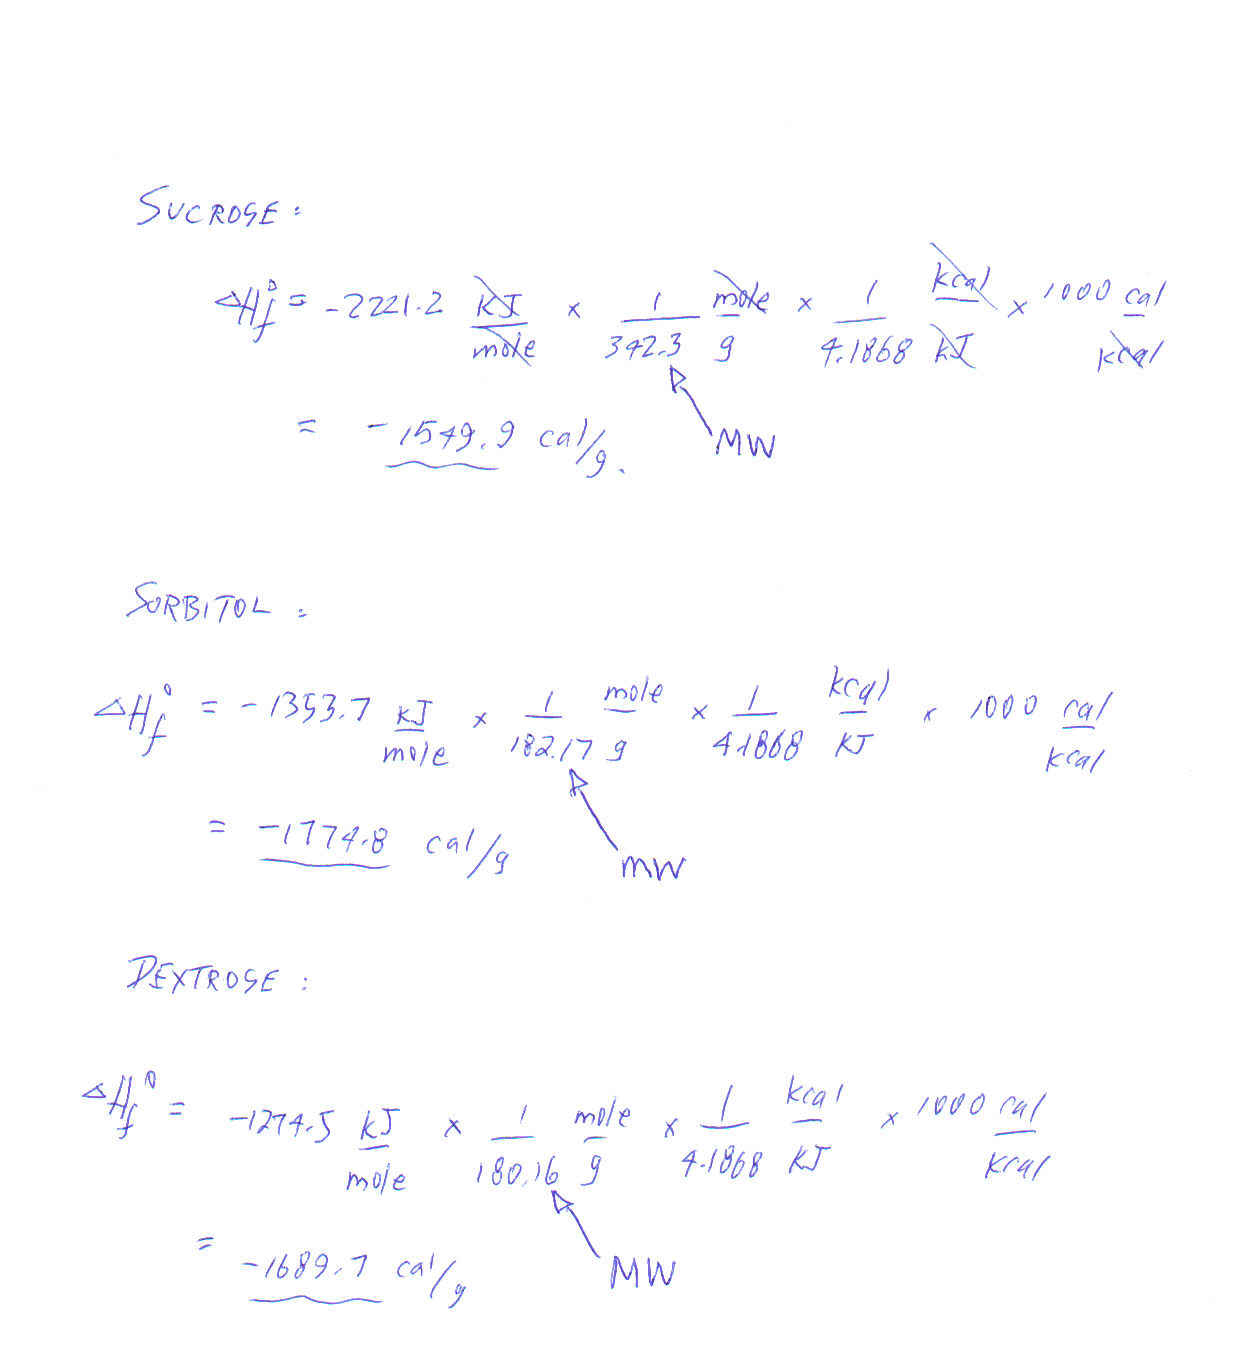 SUCROSE:
ΔHf° = -2221.2 kJ/mole × 1/342.3 mole/g × 1/4.1868 kcal/kJ × 1000 cal/kcal
= -1549.9 cal/g.
MW
SORBITOL:
ΔHf° = -1353.7 kJ/mole × 1/182.17 mole/g × 1/4.1868 kcal/kJ × 1000 cal/kcal
= -1774.8 cal/g
MW
DEXTROSE:
ΔHf° = -1274.5 kJ/mole × 1/180.16 mole/g × 1/4.1868 kcal/kJ × 1000 cal/kcal
= -1689.7 cal/g
MW